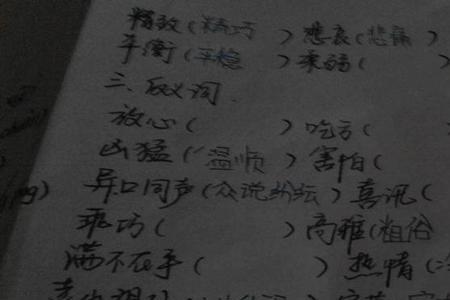 精致(精巧 ) 悲哀(悲痛 )
平衡(平稳 ) 柔弱( )
三、反义词.
放心( ) 吃亏(
凶猛(温顺 ) 害怕(
异口同声(众说纷纭) 喜讯(
乖巧( ) 高雅(粗俗
满不在乎( ) 热情(冷